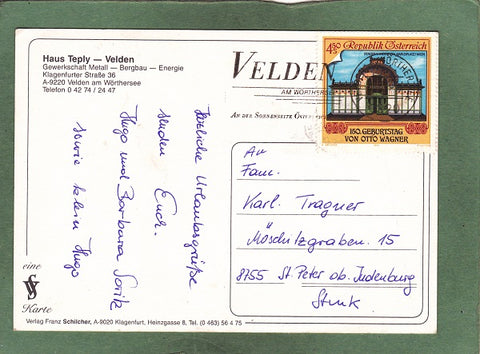 Haus Teply — Velden
Gewerkschaft Metall — Bergbau — Energie
Klagenfurter Straße 36
A-9220 Velden am Wörthersee
Telefon 0 42 74 / 24 47
VELDEN
AM WÖRTHERSEE
AN DER SONNENSEITE ÖSTERREICHS
450 Republik Österreich
150. GEBURTSTAG
VON OTTO WAGNER
Herzliche Urlaubsgrüße
senden Euch.
Hugo und Barbara
sowie klein Hugo
An
Fam.
Karl Tragner
Möschitzgraben. 15
8755 St Peter ob. Judenburg
Stmk
eine
Karte
Verlag Franz Schilcher, A-9020 Klagenfurt, Heinzgasse 8, Tel. (0 463) 56 4 75